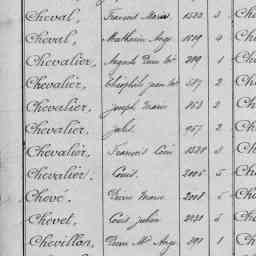 Cheval, François Marie 1533 3
Cheval, Mathurin Ange 1819 4
Chevalier, Auguste Pierre Me 299 1
Chevalier, Théophile Jean Me 587 2
Chevalier, Joseph Marie 853 2
Chevalier, Jules 957 2
Chevalier, François Louis 3
Chevalier, Louis 2005 5
Chevé, Pierre Marie 2008 5
Chevet, Louis Julien 2031 5
Chevillan, Pierre Me Ange 1